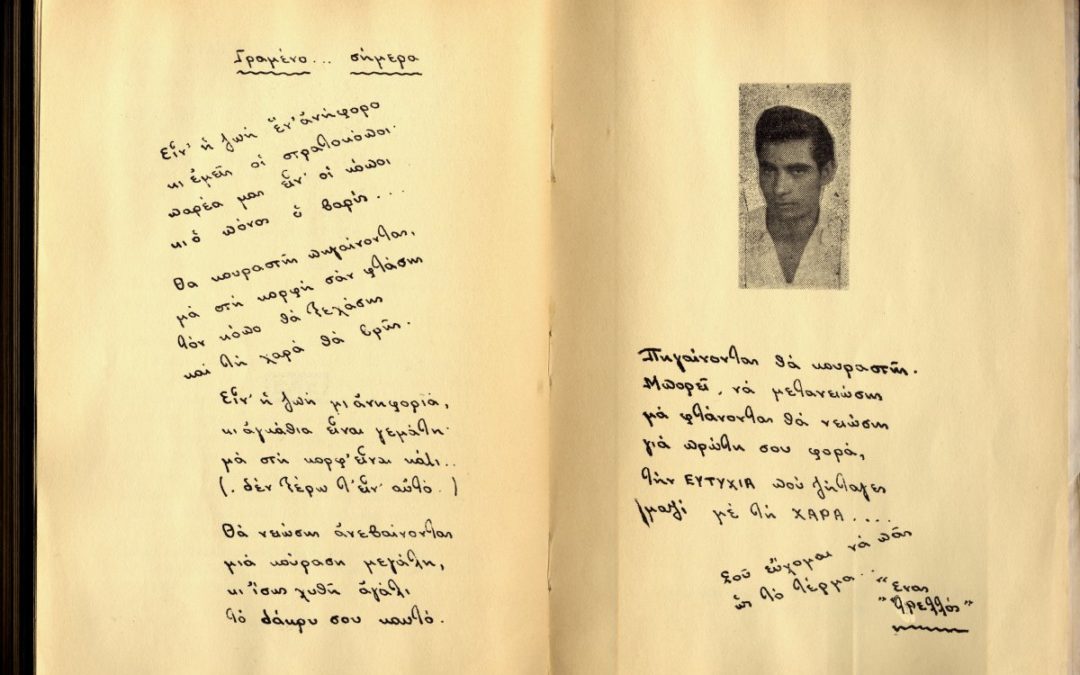 Γραμένο... σήμερα
Εἶν' ἡ ζωή ἕν' ἀνήφορο
κι ἐμεῖς οἱ στρατοκόποι·
παρέα μας εἶν' οἱ κόποι
κι ὁ πόνος ὁ βαρύς...
Θα κουραστῆς πηγαίνοντας,
μά στή κορφή σάν φτάσης
τόν κόπο θά ξεχάσης
καί τή χαρά θά βρῆς.
Εἶν' ἡ ζωή μι ἀνηφοριά,
κι ἀγκάθια εἶναι γεμάτη·
μά στή κορφ' εἶναι κάτι..
(. δέν ξέρω τ' εἶν' αὐτό. )
Θά νειώσης ἀνεβαίνοντας
μιά κούραση μεγάλη,
κι ἴσως χυθῆ ἀγάλι
τό δάκρυ σου καυτό.
Πηγαίνοντας θά κουραστῆς.
Μπορεῖ, νά μετανειώσης
μά φτάνοντας θά νειώσης
γιά πρώτη σου φορά,
τήν ΕΥΤΥΧΙΑ πού ζήταγες
μαζί μέ τή ΧΑΡΑ....
Σοῦ εὔχομαι νά πᾶς
ὡς τό τέρμα...
"Ενας
"Τρελλός"